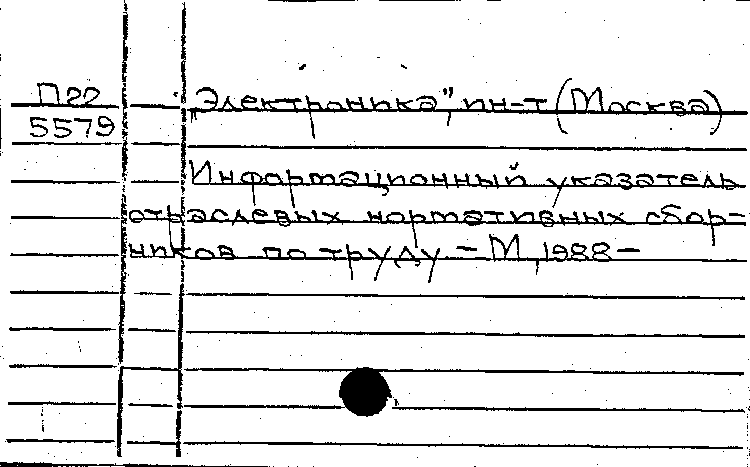 П22
5579
„Электроника", ин-т (Москва)
Информационный указатель
отраслевых нормативных сбор-
ников по труду. - М, 1988 -